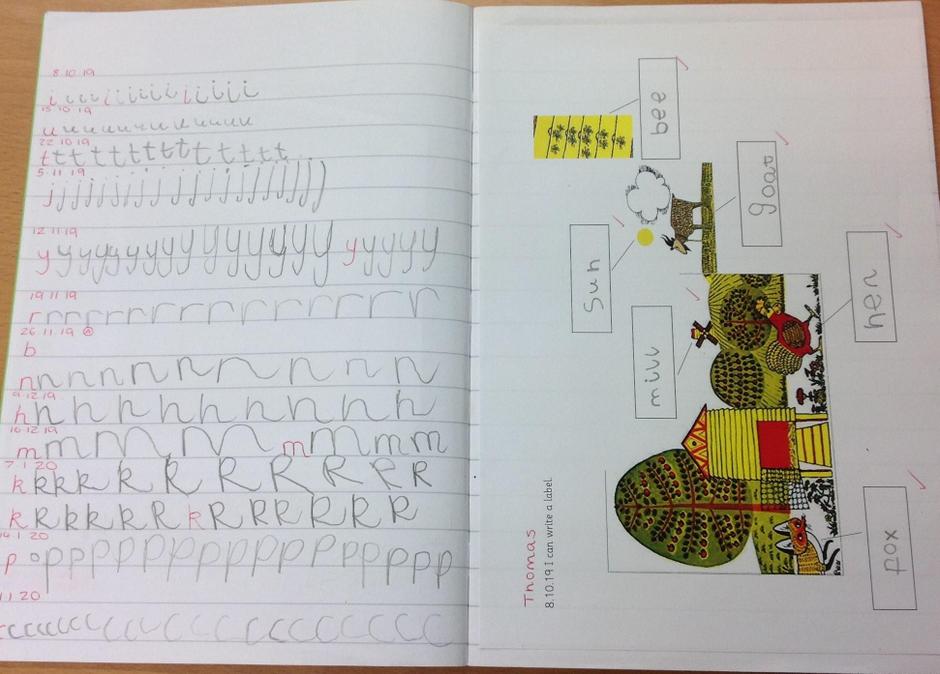 8.10.19
i i i i i i i i i i i i i i i
15.10.19
u u u u u u u u u u u u u
22.10.19
t t t t t t t t t t t t t t t
5.11.19
j j j j j j j j j j j j j j j j j j j
12.11.19
y y y y y y y y y y y y y y y y y y y y
19.11.19
r r r r r r r r r r r r r r
26.11.19
b
n n n n n n n n n n n n
9.12.19
h h h h h h h h h h
16.12.19
m m m m m m m m m
7.1.20
k k k k k k k k k k k k
k k k k k k k k k k k k k
14.1.20
p o p p p p p p p p p p p p p p p p
1.20
c c c c c c c c c c c c c c c c c c c
Thomas
8.10.19 I can write a label.
bee
goat
sun
hen
mill
fox